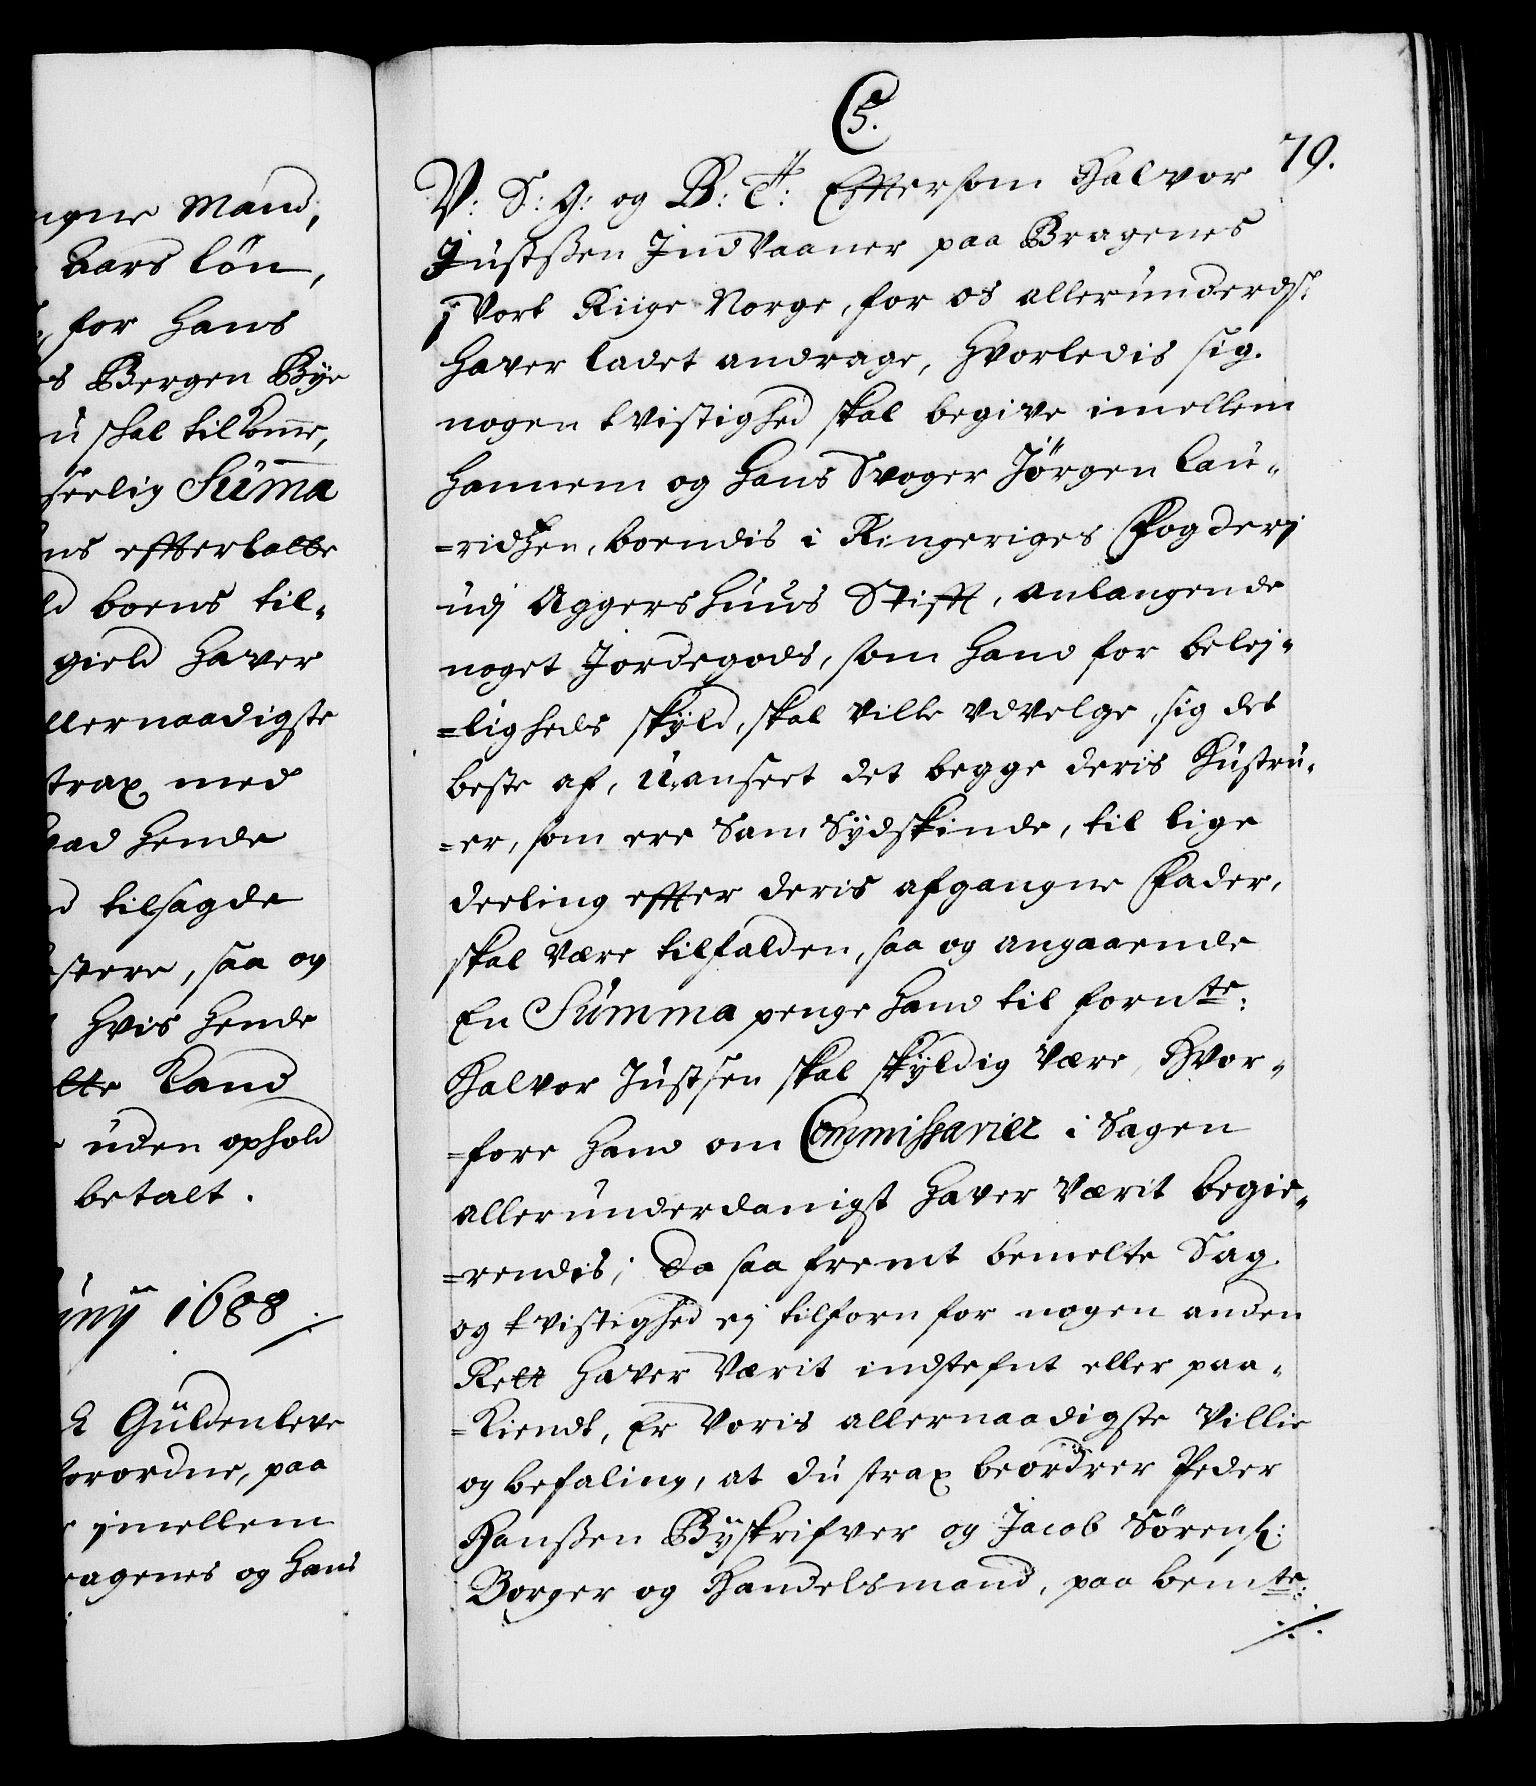 ngne Mand,
Aars løn,
for hans
s Bergen Bÿe
u skal tilkom̄e,
seelig Sum̄a
ns effterlatte
ld boens til-
gield haver
llernaadigste
trax med
had hende
d tilsagde
stere, saa og
hvis hende
lte Land
uden ophold
betalt.
unÿ 1688 ./.
Güldenleve
forordne, paa
imellem
ragenes og hans
C5.
79.
V: S: G: og B: T: Efftersom Halvor
Justsßen Indvaaner paa Bragenes
j Vort Riige Norge, for os allerunderdst:
haver ladet andrage, hvorledis sig.
nogen tvistighed skal begive imellem
hannem og hans Svoger Jørgen Lau-
=ridsen, boendis i Ringeriges Fogderj
udj Aggershuus Stifft, anlangende
noget Jordegods, som hand for belej-
=ligheds skÿld, skal ville udvelge sig det
beste af, uanseet det begge deris Hustru-
=er, som ere Sam Sÿdskinde, til lige
deeling effter deris afgangne Fader,
skal være tilfalden, saa og angaaende
En Summa penge hand til fornte:
Halvor Justsen skal skÿldig være, hvor-
=fore hand om Commissarier i Sagen
allerunderdanigst haver værit begie-
=rendis; Da saa fremt bemelte Sag
og tvistighed ej tilforn for nogen anden
Rett haver værit indstefnt eller paa-
=kiendt, Er Voris allernaadigste Villie
og befaling, at du strax beordrer Peder
Hanßen Bÿskrifver og Jacob Sørens:
Borger og Handelsmand, paa bemte:
./.